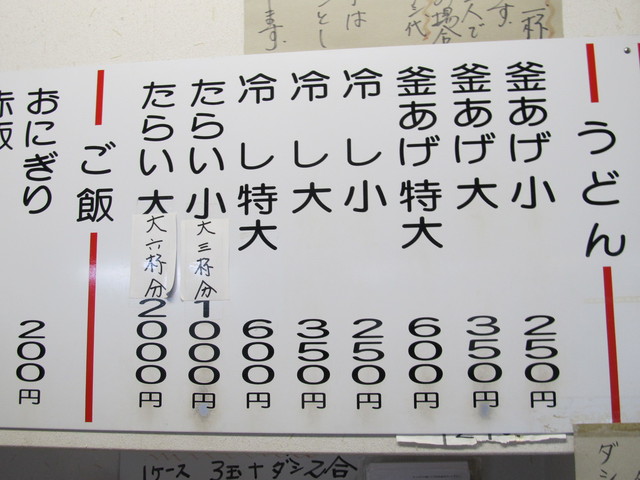 うどん
釜あげ小 250円
釜あげ大 350円
釜あげ特大 600円
冷し小 250円
冷し大 350円
冷し特大 600円
たらい小 1000円
大三杯分
たらい大 2000円
大六杯分
ご飯
おにぎり 200円
赤飯
1ケース 3玉+ダシ2合